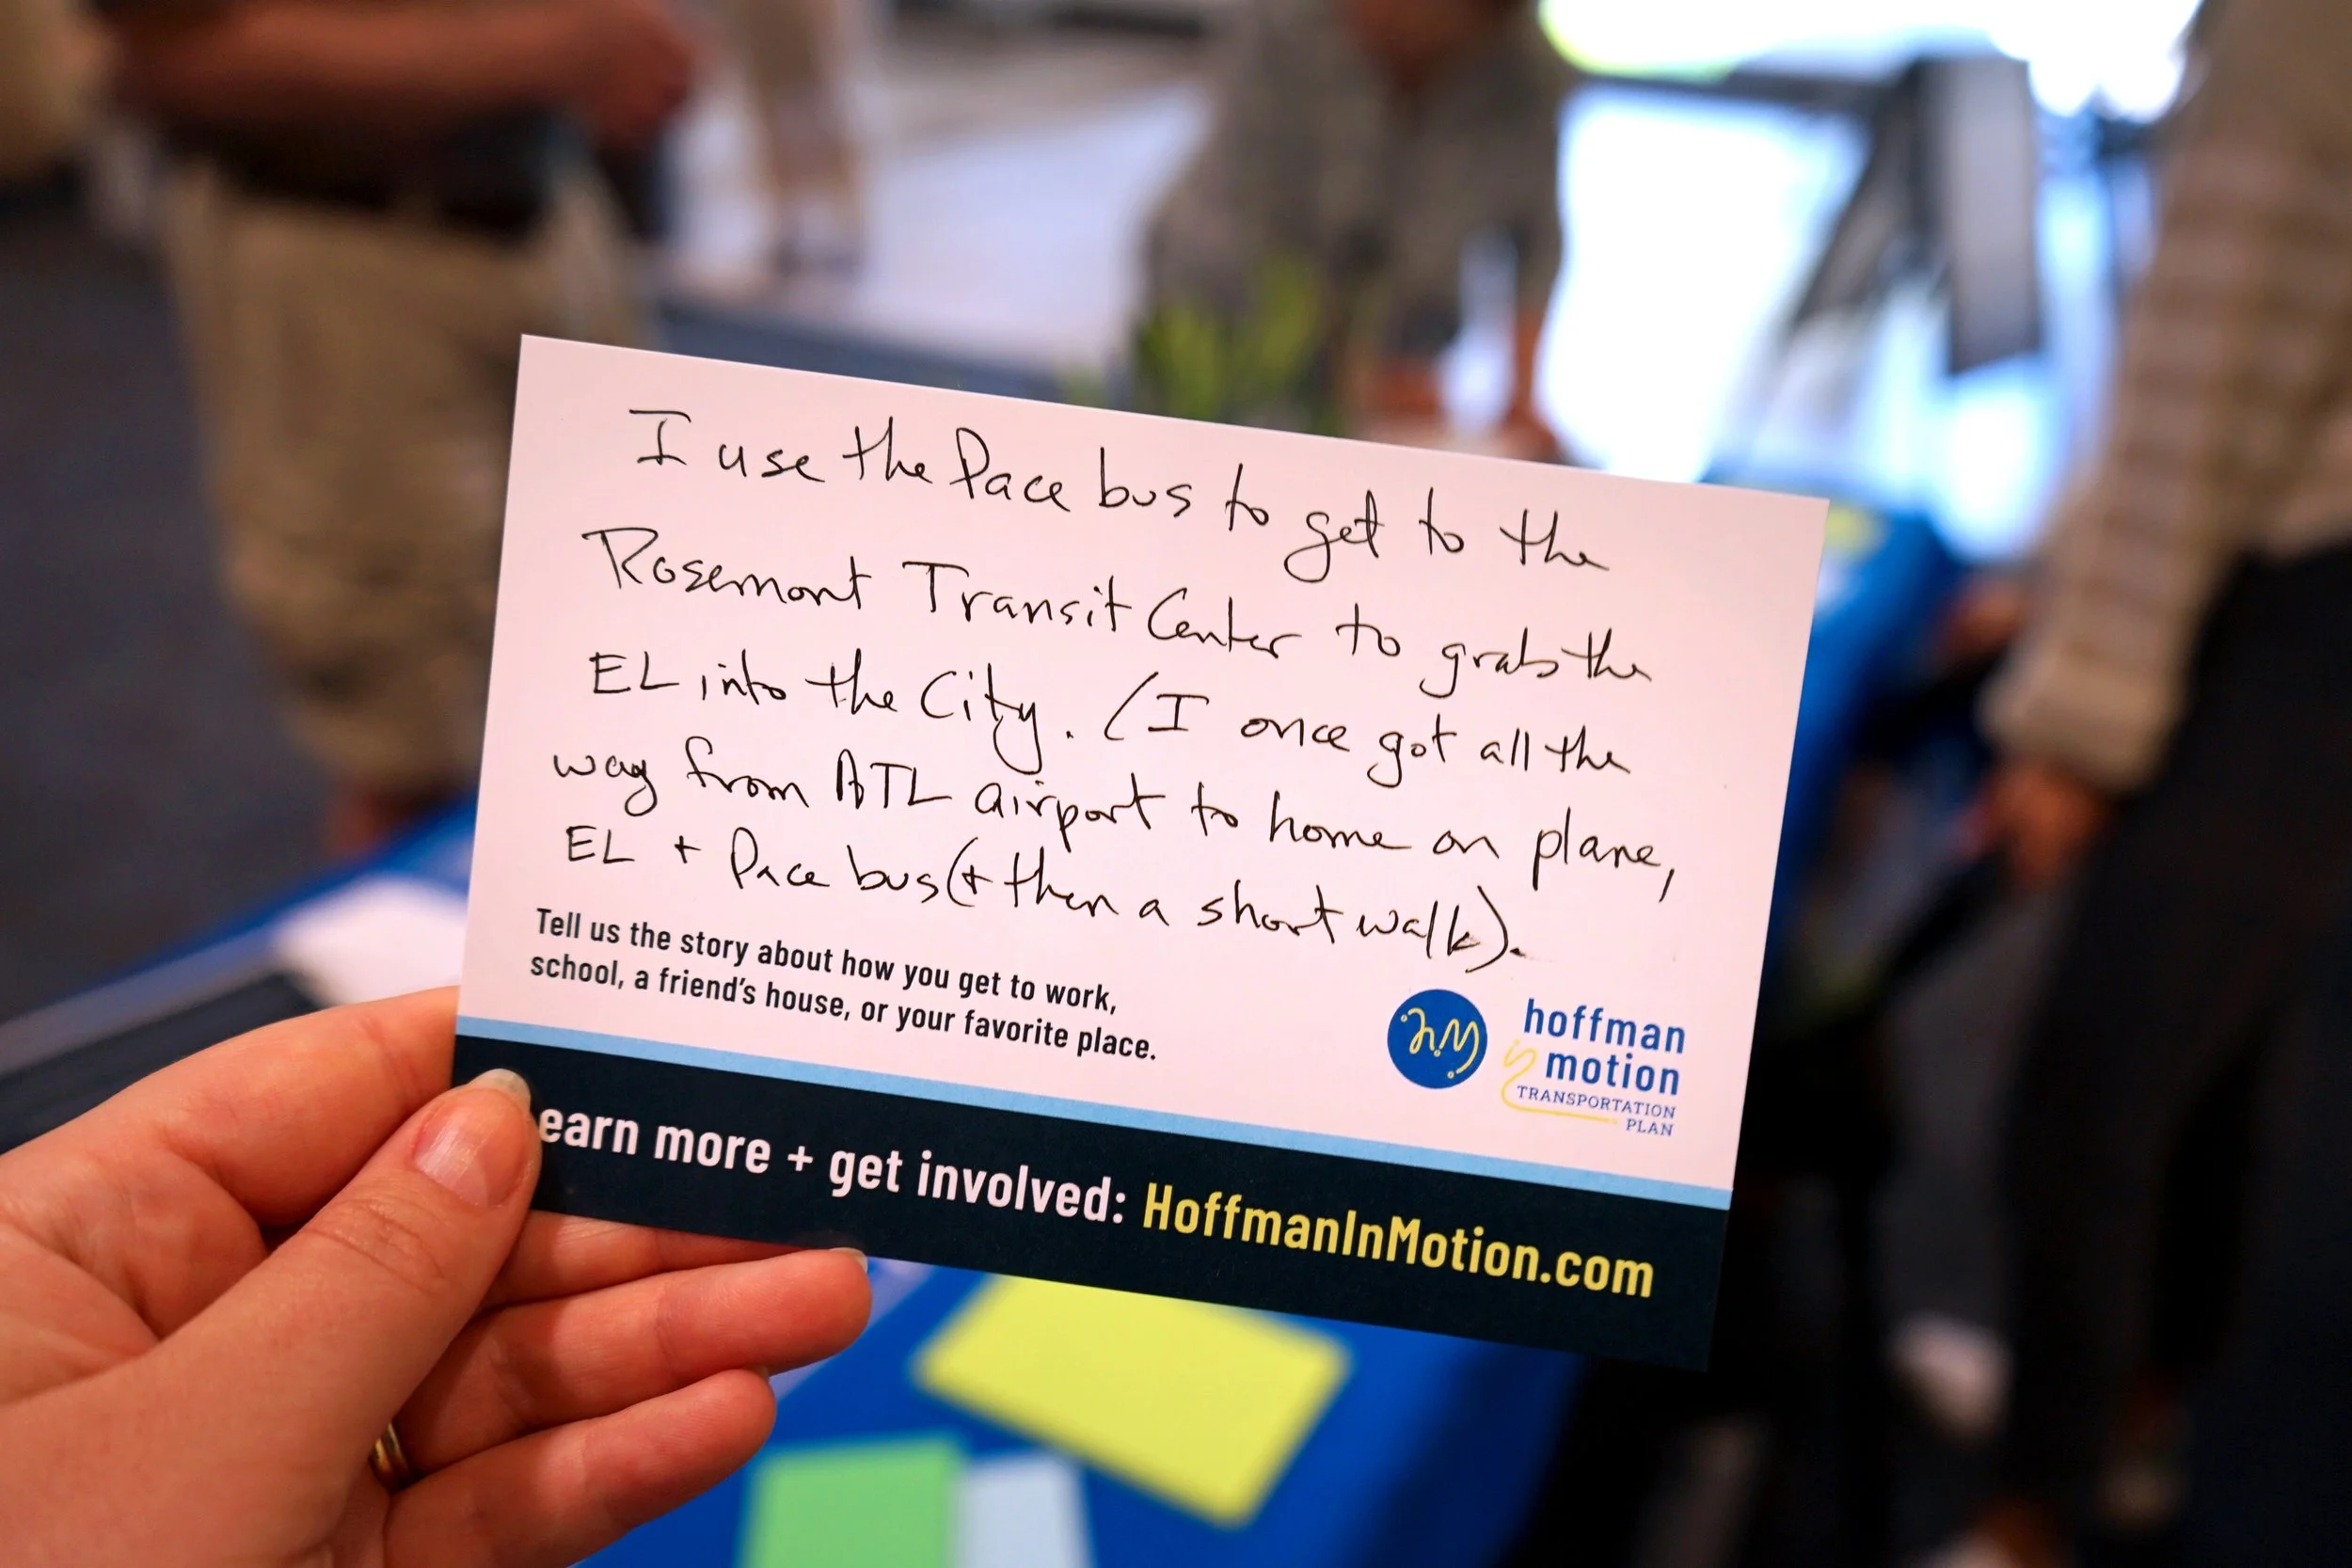 I use the Pace bus to get to the
Rosemont Transit Center to grab the
EL into the City. (I once got all the
way from ATL airport to home on plane,
EL + Pace bus (+ then a short walk).
Tell us the story about how you get to work,
school, a friend's house, or your favorite place.
hm
hoffman
in motion
TRANSPORTATION
PLAN
earn more + get involved: HoffmanInMotion.com